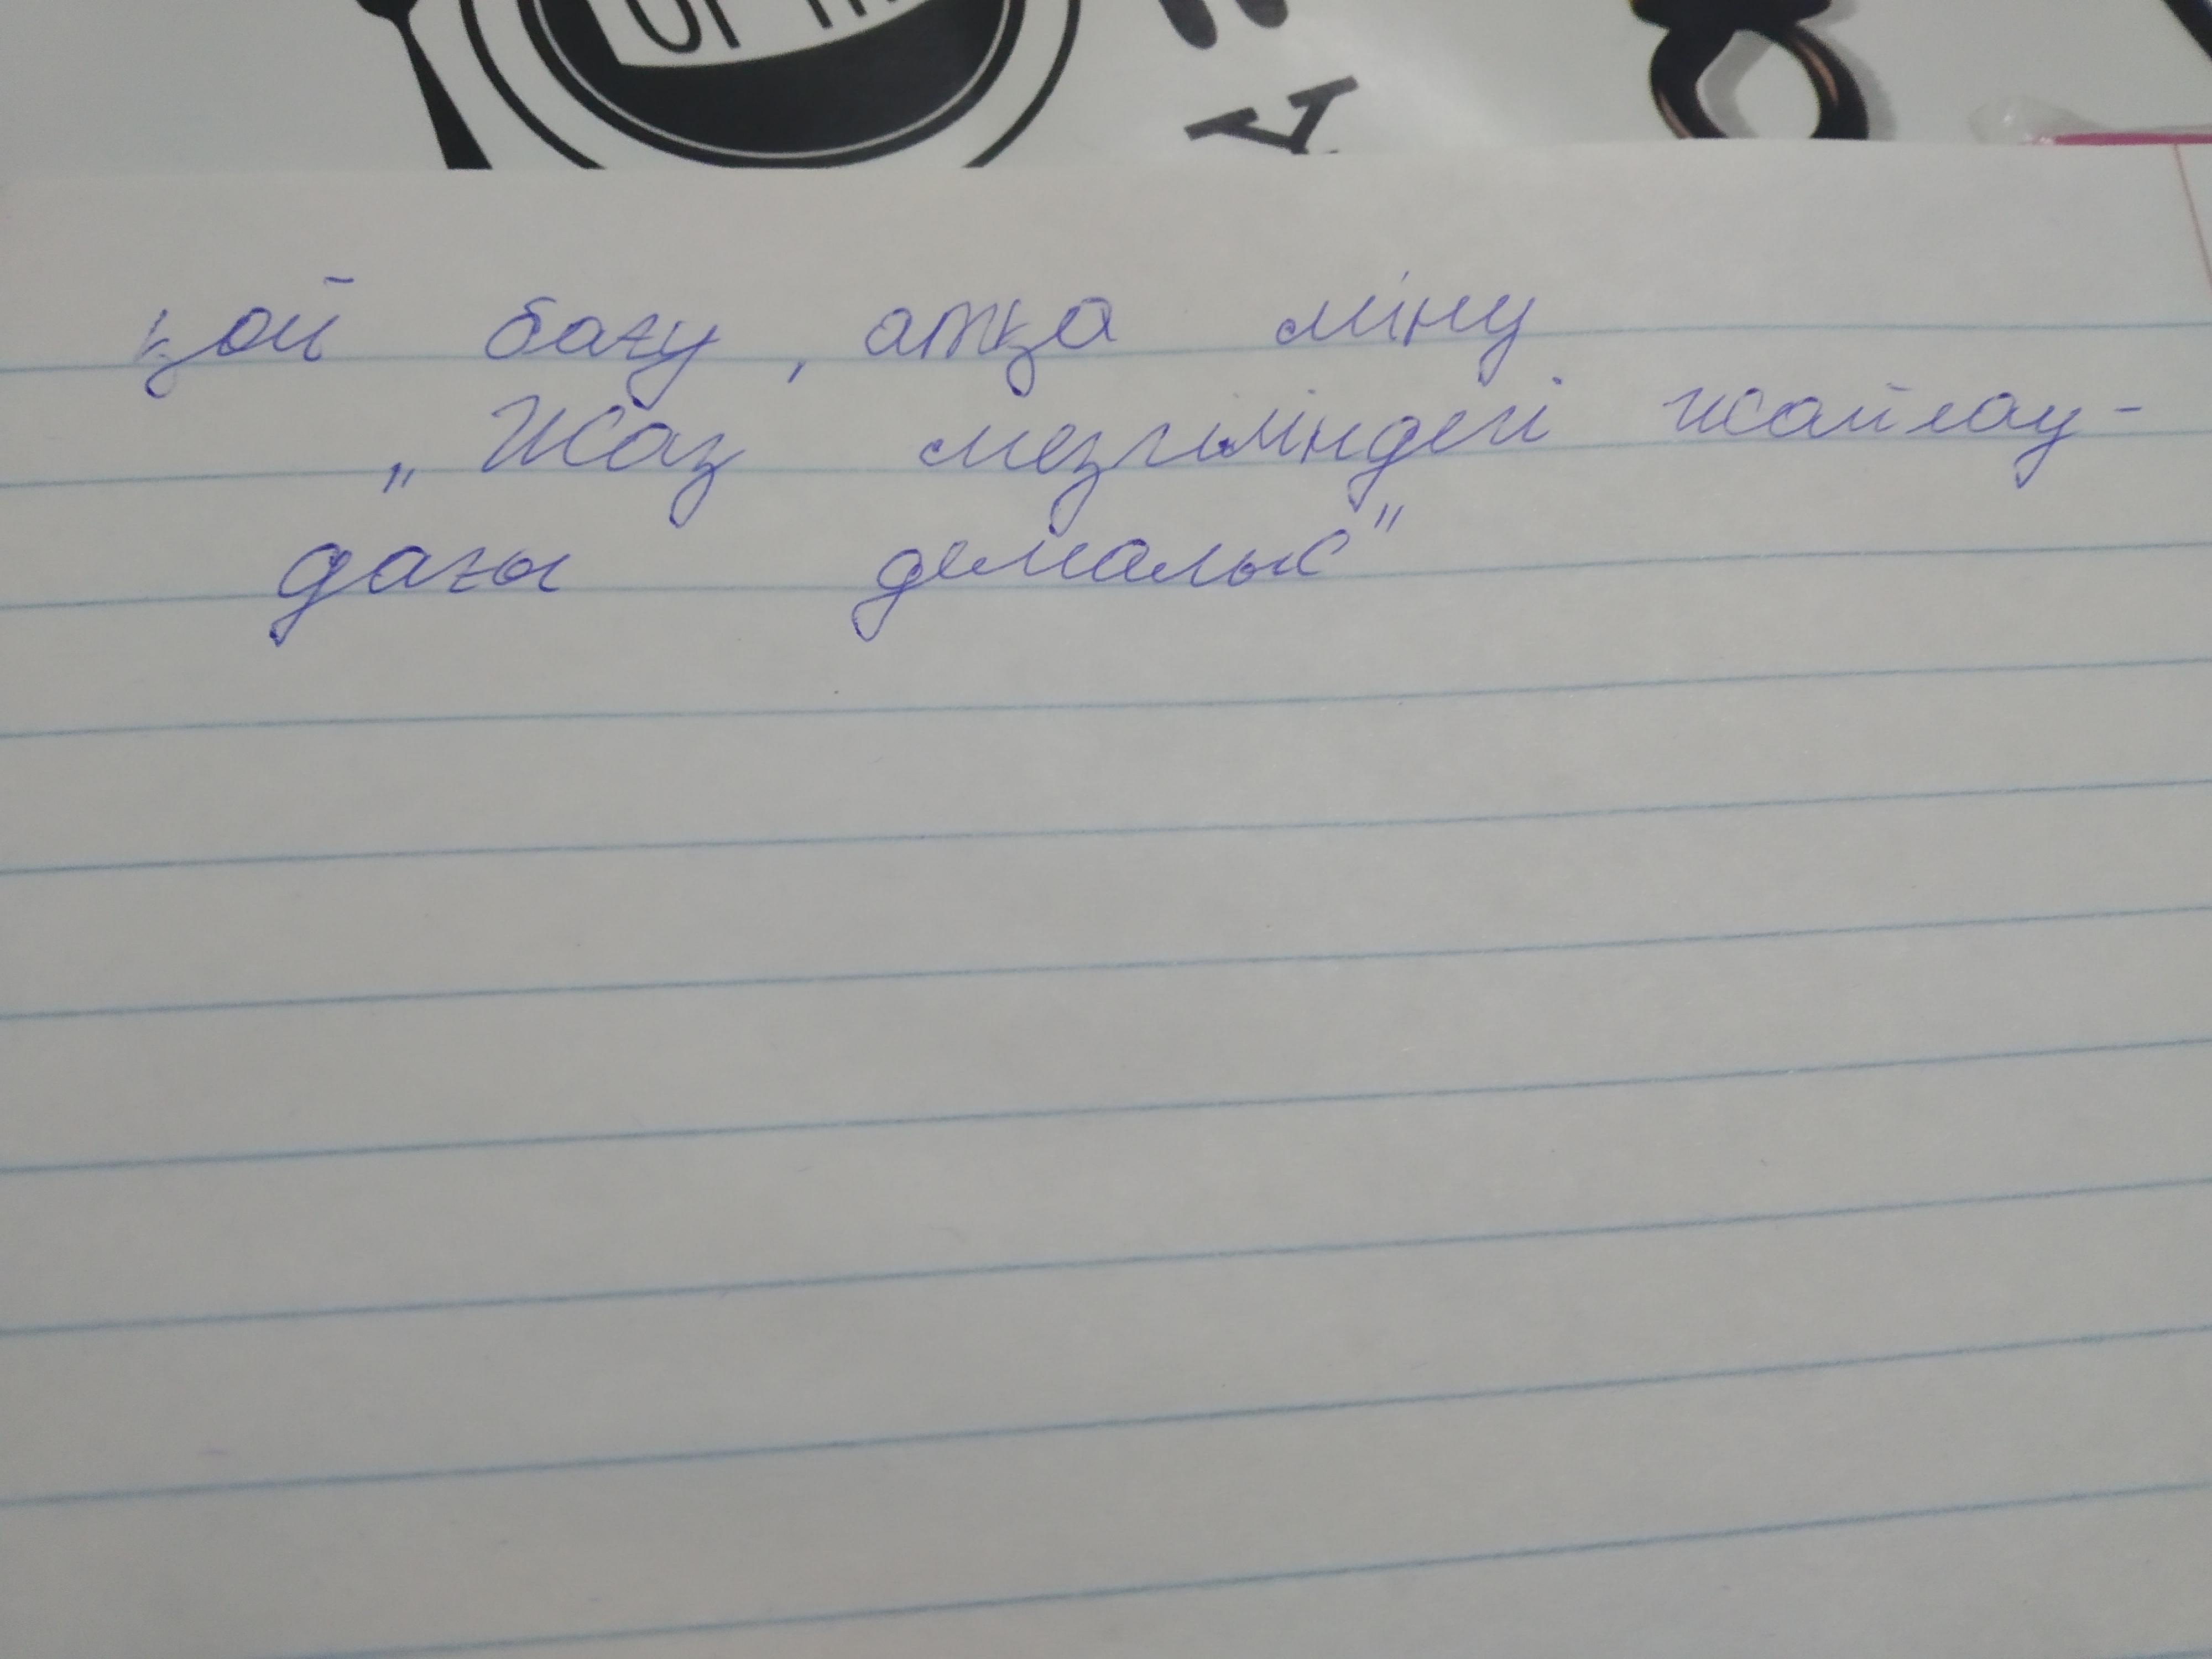 қой бағу, атқа міну
„Жаз мезгіліндегі жайлау-
дағы демалыс"